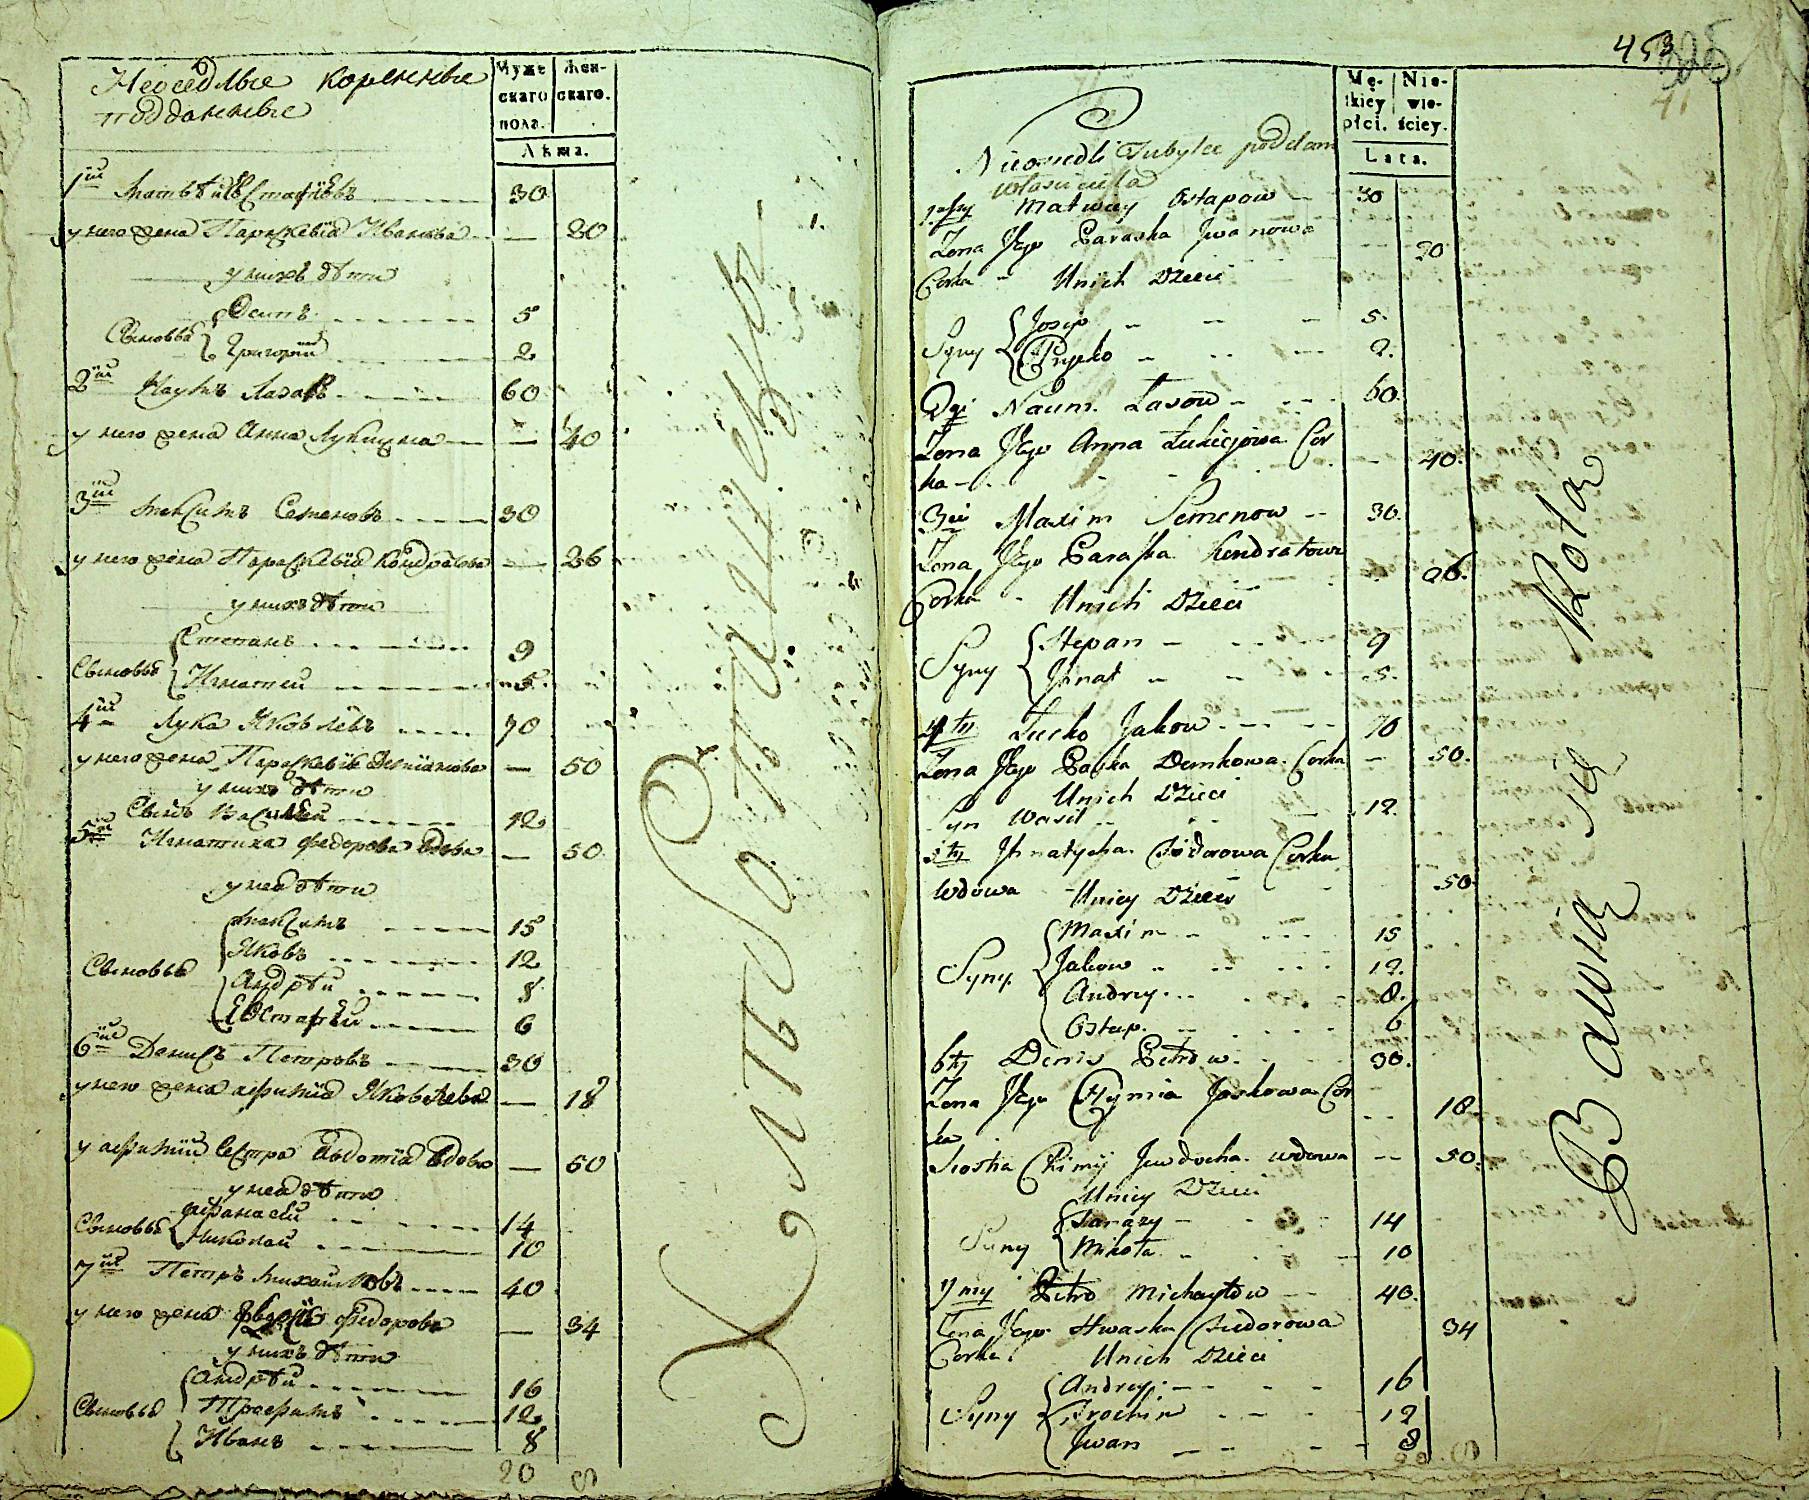 Неоседлые коренные
подданные
Мужескаго пола.
Женскаго.
Лѣта.
1й Матвѣй Естафiевъ 30
у него жена Параскевiя Иванова — 20
у нихъ дѣти
Сыновья
Осипъ 5
Григорiй 2
2й Наумъ 60
у него жена Анна — 40
3й Максимъ Семеновъ 30
у него жена Параскевiя Кондратова — 26
у нихъ дѣти
Сыновья
Степанъ 9
Игнатей 5
4й Лука Яковлевъ 70
у него жена Параскевiя Демiанова — 50
у нихъ дѣти
Сынъ Василей 12
5й Игнатиха Федорова вдова — 50
у нея дѣти
Сыновья
Максимъ 15
Яковъ 12
Андрѣй 8
Естафѣй 6
6й Денисъ Петровъ 30
у него жена Афимiя Яковлева — 18
у Афимiи сестра Авдотiя вдова — 50
у нея дѣти
Сыновья
Афанасей 14
Николай 10
7й Петръ Михайловъ 40
у него жена Федорова — 34
у нихъ дѣти
Сыновья
Андрѣй 16
Трофимъ 12
Иванъ 8
20 8
453
Męzkiey płci.
Niewieściey.
Lata.
Nieosiedli Tubylce poddani
własciciela
1szy Matwiey Ostapow 30
Zona Jego Paraska Jwanowa 20
Corka Unich Dzieci
Syny
Josip 5
Hryćko 2
2gi Naum Lasow 60
Zona Jego Anna Łukiejowa Cor 40
ka
3ci Maxim Semenow 30
Zona Jego Paraska Kondratowa 26
Corka Unich Dzieci
Syny
Stepan 9
Jhnat 5
4ty Łucko Jakow 70
Zona Jego Paska Demkowa Corka — 50
Unich Dzieci
Syn Wasil 12
5ty Jhnatycha Chidorowa Corka
Wdowa Uniey Dzieci 50
Syny
Maxim 15
Jakow 12
Andrey 8
Ostap 6
6ty Denis Petrow 30
Zona Jego Chymia Jaskowa Cor 18
ka
Siostra Chimij Jewdocha wdowa 50
Uniey Dzieci
Syny
Panazy 14
Mikoła 10
7my Petro Michayłow 40
Zona Jego Hwaska Chiedorowa 34
Corka Unich Dzieci
Syny
Andrey 16
Trochim 12
Jwan 8
20 8
Bawią się Rota